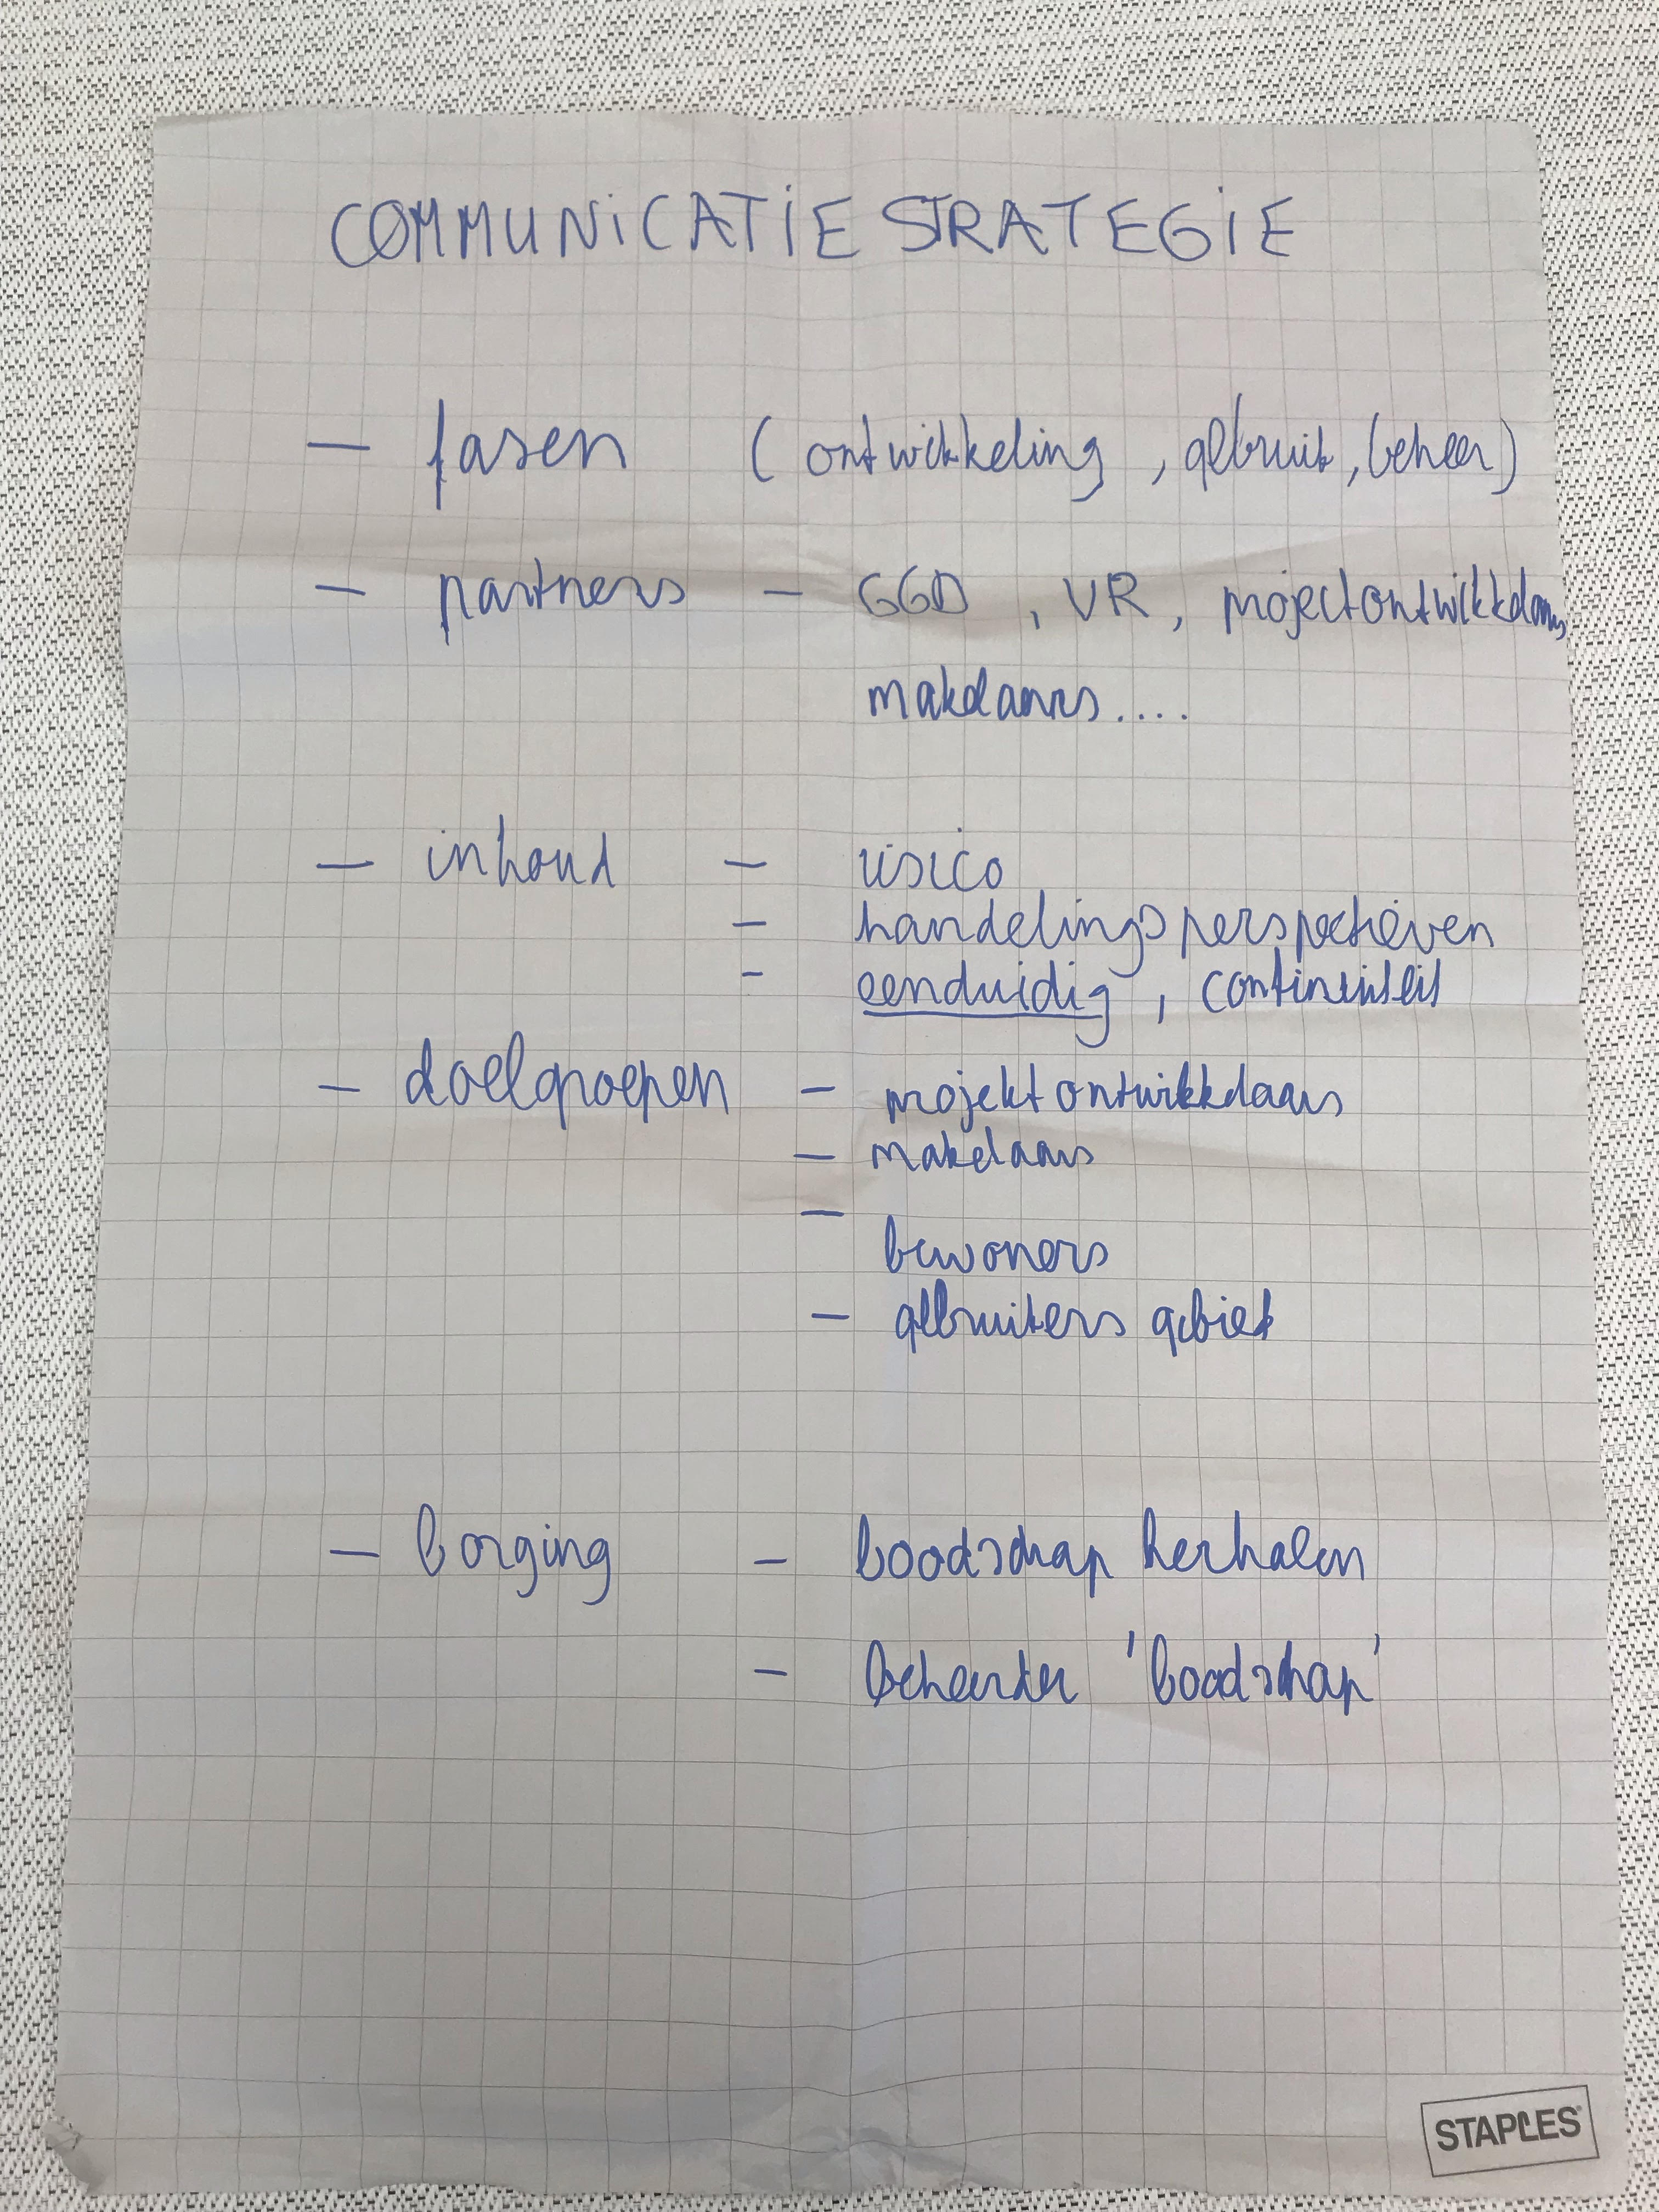 COMMUNICATIE STRATEGIE
- fasen (ontwikkeling, gebruik, beheer)
- partners - GGD, VR, projectontwikkelaars,
makelaars....
- inhoud - risico
- handelingsperspectieven
- eenduidig, continuiteit
- doelgroepen - projektontwikkelaars
- makelaars
- bewoners
- gebruikers gebied
- borging - boodschap herhalen
- beheerder 'boodschap'
STAPLES